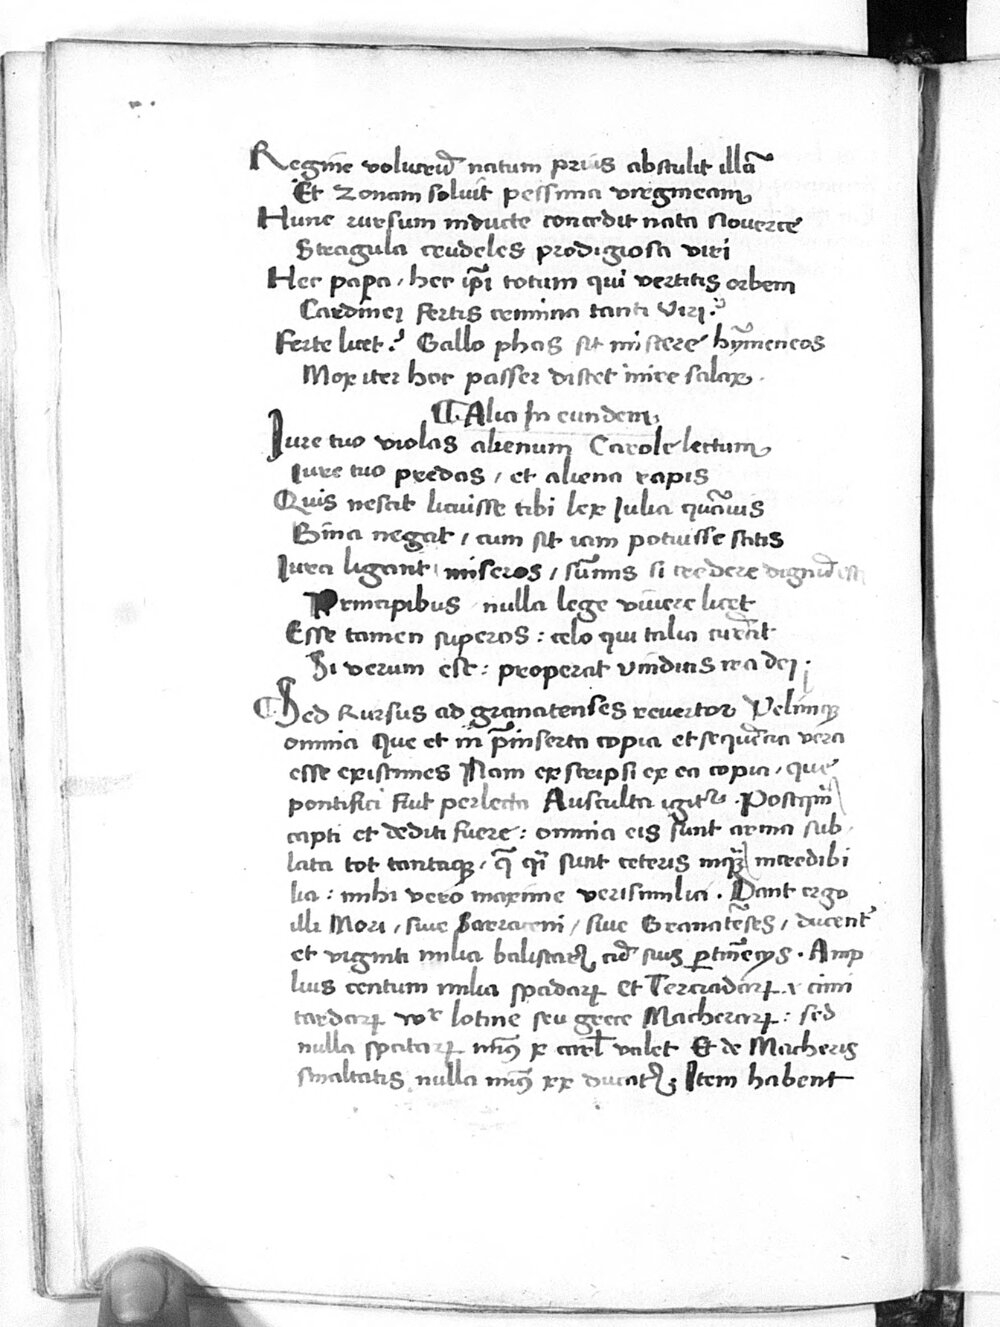 Regine volucrū natum prius abstulit illā
Et zonam soluit pessima virgineam
Hunc rursum inducte concedit nata Nouerce
Stragula crudeles prodigiosa viri
Hec papa, hec ip̄i totum qui vertitis orbem
Cardinei fertis crimina tanti viri.?
Ferte licet.? Gallo phas sit miscere hȳmeneos
Mox iter hoc passer distet inire salax.
Alia In eundem
Iure tuo violas alienum Carole lectum
Iure tuo predas / et aliena rapis
Quis nescit licuisse tibi lex Iulia quāuis
Bina negat / cum sit iam potuisse satis
Iura ligant miseros / sūmis si credere dignū est
Principibus nulla lege viuere licet
Esse tamen superos : celo qui talia curēt
Si verum est : properat vindictis ira dei.
Sed Rursus ad granatenses reuertor Velimq3
omnia Que et in p̄inserta copia et sequētia vera
esse existimes Nam exscripsi ex ea copia, que
pontifici fuit perlecta Ausculta igitr. Postqm̄
capti et dediti fuere : omnia eis sunt arma sub
lata tot tantaq3, q̄ qī sunt ceteris inquā incredibi
lia : mihi vero maxime verisimilia. Dant ergo
illi Mori / siue Sarraceni / siue Granatēses / ducent
et viginti milia balistaꝝ cū suis ꝑtinēcijs. Amp
lius centum milia spadaꝝ et Terciadaꝝ
tardaꝝ latine seu grece Macheraꝝ : sed
nulla spataꝝ minꝰ x carl̄ valet Et de Macheris
smaltatis nulla minꝰ xx ducatꝭ Item habent